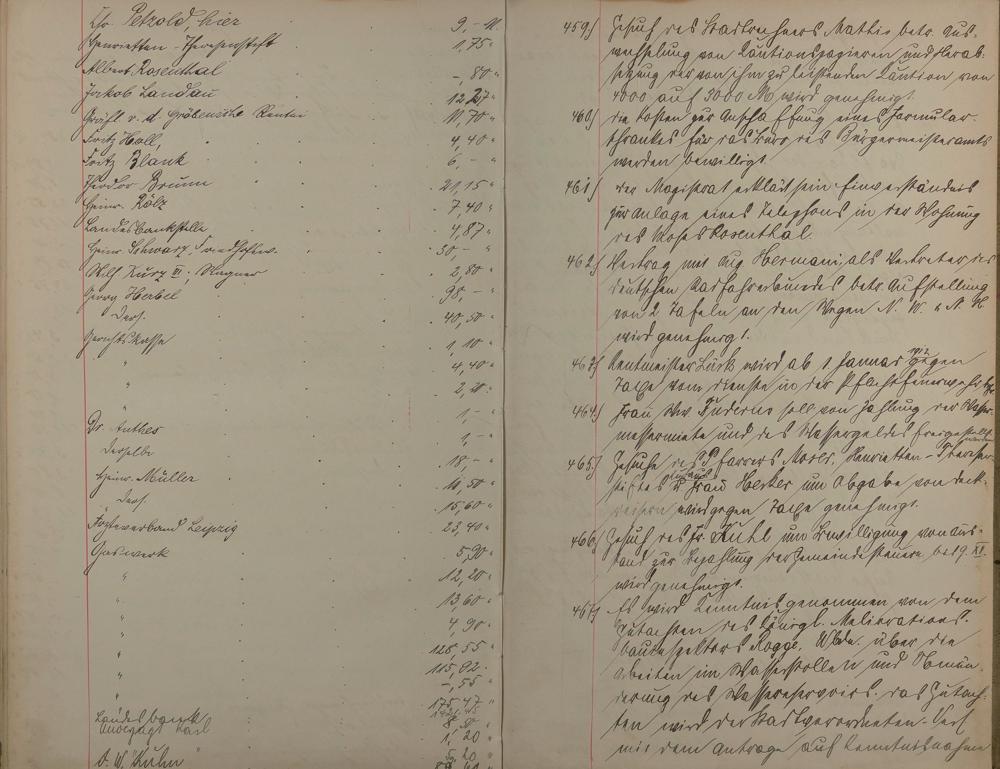 Chr. Petzold, hier 9,– M.
Henrietten-Theresenstift 1,75 "
Albert Rosenthal –,80 "
Jakob Landau 12,27 "
Gräfl. v. d. Gröbensche Rentei 11,70 "
Fritz Holl, 4,40 "
Fritz Blank 6,– "
Theodor Brumm 21,15 "
Heinr. Kölz 7,40 "
Landesbankstelle 4,87 "
Heinr. Schwarz, 50,– "
Wilh. Kurz III, Wagner 2,80 "
Georg Herbel 98,– "
Ders. 40,50 "
Gerichtskasse 1,10 "
" 4,40 "
" 2,20 "
" 1,– "
Dr. Anthes 1,– "
Derselbe 18,– "
Heinr. Müller 10,50 "
Ders. 15,60 "
Ärzteverband Leipzig 23,40 "
Gaswerk 5,90 "
" 12,20 "
" 13,60 "
" 4,90 "
" 125,55 "
" 115,92 "
" –,55 "
" 175,47 "
Landesbank
Karl 1,20 "
Kuhn 5,20 "
459) Gesuch des Stadtrechners Mathis betr. Aus-
wechselung von Kautionspapieren und Herab-
setzung der von ihm zu leistenden Kaution von
4000 auf 3000 M wird genehmigt.
460) Die Kosten zur Anschaffung eines Formular-
schrankes für das Büro des Bürgermeisteramts
werden bewilligt.
461) Der Magistrat erklärt sein Einverständnis
zur Anlage eines Telephons in der Wohnung
des Moses Rosenthal.
462) Vertrag mit Aug. Hermani, als Vertreter des
Deutschen Radfahrerbundes betr. Aufstellung
von 2 Tafeln an den Wegen N. W. u. N. H.
wird genehmigt.
463) Rentmeister Lück wird ab 1. Januar 1912 gegen
Taxe vom Dienste in der Pflichtfeuerwehr
464) Frau Ww. soll von Zahlung der Wasser-
messermiete und des Wassergeldes freigestellt
werden
465) Gesuche des Pfarrers Moser, Henrietten-Theresen-
stiftes u. Frau Herber um Abgabe von Deck-
reisern wird gegen Taxe genehmigt.
466) Gesuch des Fr. Kuhl um Bewilligung von Aus-
stand zur Bezahlung der Gemeindesteuern bis 19. XI.
wird genehmigt.
467) Es wird Kenntnis genommen von dem
Gutachten des Königl. Meliorations-
bauinspektors Rogge, Wbdn. über die
Arbeiten im Wasserstollen und
des Wasserreservoirs. Das Gutach-
ten wird der Stadtverordneten-Vers.
mit dem Antrage auf Kenntnisnahme